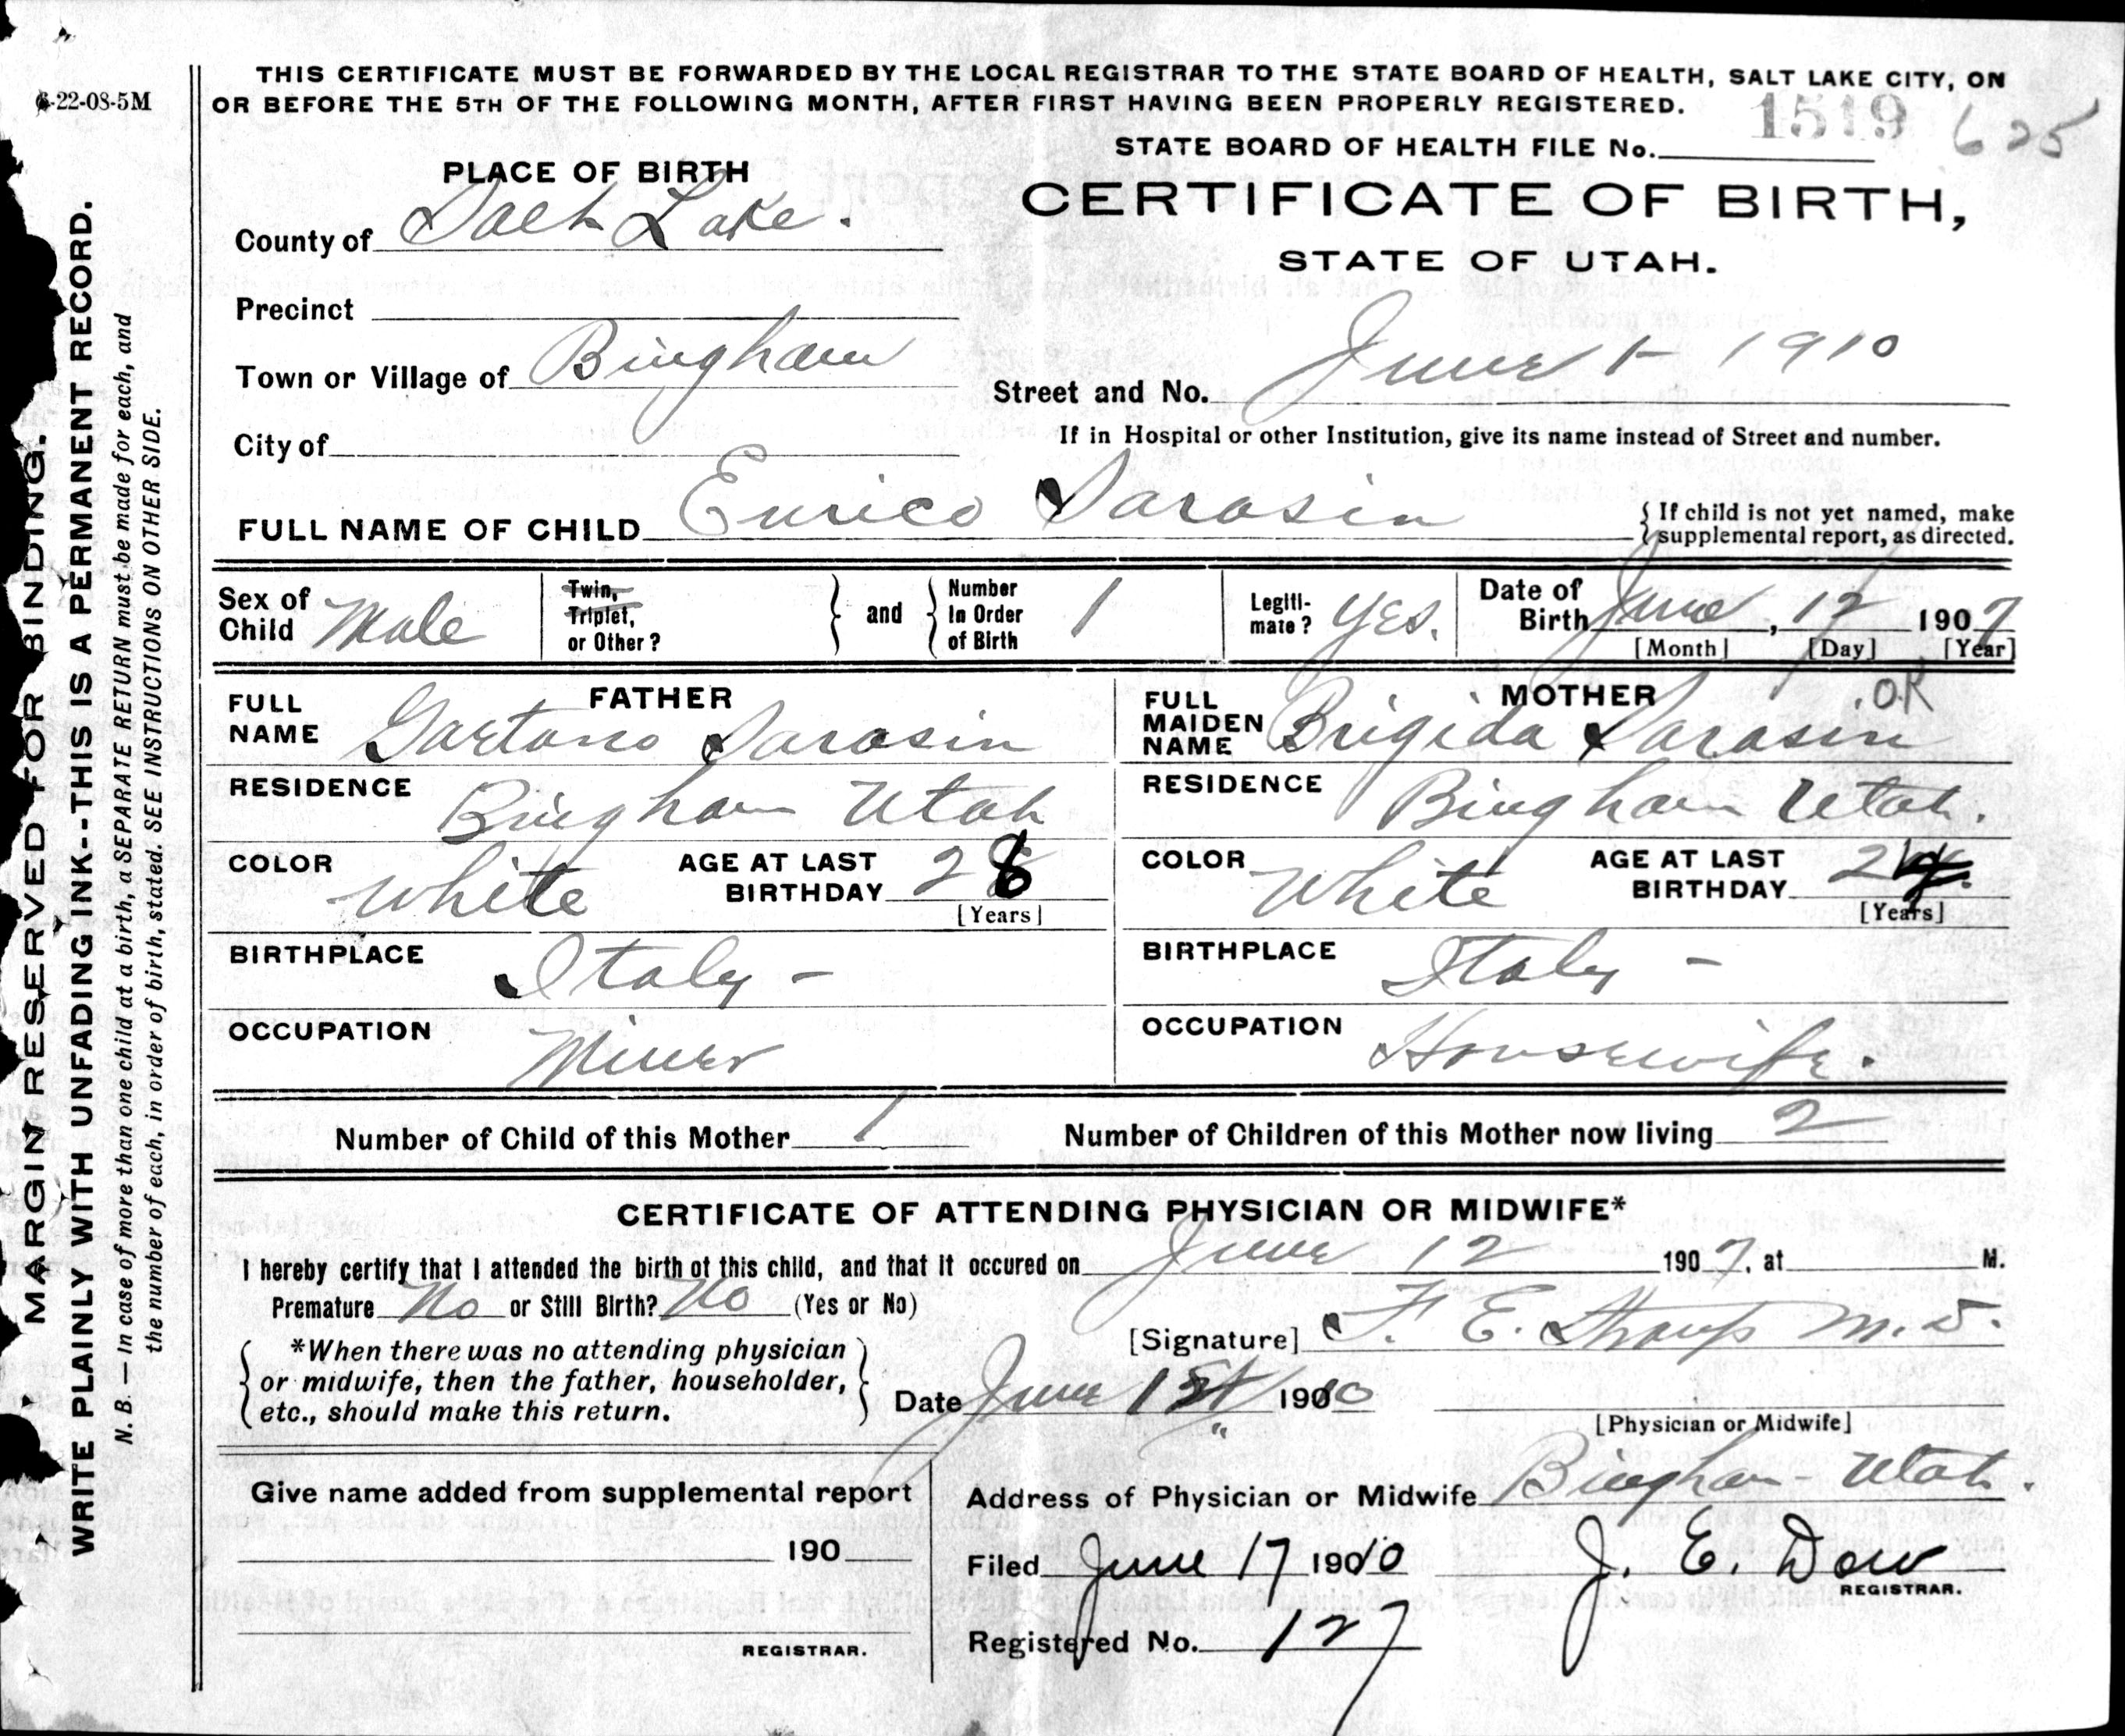 6-22-08-5M
THIS CERTIFICATE MUST BE FORWARDED BY THE LOCAL REGISTRAR TO THE STATE BOARD OF HEALTH, SALT LAKE CITY, ON
OR BEFORE THE 5TH OF THE FOLLOWING MONTH, AFTER FIRST HAVING BEEN PROPERLY REGISTERED.
1519 625
STATE BOARD OF HEALTH FILE No.
PLACE OF BIRTH
CERTIFICATE OF BIRTH,
STATE OF UTAH.
County of Salt Lake.
Precinct
Town or Village of Bingham
Street and No. June 1 - 1910
City of
If in Hospital or other Institution, give its name instead of Street and number.
FULL NAME OF CHILD Enrico Sarasin
{ If child is not yet named, make
{ supplemental report, as directed.
Sex of Child Male
Twin, Triplet, or Other?
and
Number In Order of Birth 1
Legiti-mate? Yes.
Date of Birth June, 12 1907
[Month] [Day] [Year]
FATHER
FULL NAME Gaetano Sarasin
RESIDENCE Bingham Utah
COLOR White AGE AT LAST BIRTHDAY 28
[Years]
BIRTHPLACE Italy -
OCCUPATION Miner
MOTHER
OK
FULL MAIDEN NAME Brigida Sarasin
RESIDENCE Bingham Utah.
COLOR White AGE AT LAST BIRTHDAY 24
[Years]
BIRTHPLACE Italy -
OCCUPATION Housewife.
Number of Child of this Mother 1
Number of Children of this Mother now living 2
CERTIFICATE OF ATTENDING PHYSICIAN OR MIDWIFE*
I hereby certify that I attended the birth of this child, and that it occured on June 12 1907, at M.
Premature No or Still Birth? No (Yes or No)
[Signature] F. E. Straup M.D.
*When there was no attending physician
or midwife, then the father, householder,
etc., should make this return.
Date June 1st 1910
[Physician or Midwife]
Give name added from supplemental report
190
REGISTRAR.
Address of Physician or Midwife Bingham - Utah.
Filed June 17 1910 J. E. Dow
REGISTRAR.
Registered No. 127
MARGIN RESERVED FOR BINDING.
WRITE PLAINLY WITH UNFADING INK--THIS IS A PERMANENT RECORD.
N. B. — In case of more than one child at a birth, a SEPARATE RETURN must be made for each, and
the number of each, in order of birth, stated. SEE INSTRUCTIONS ON OTHER SIDE.